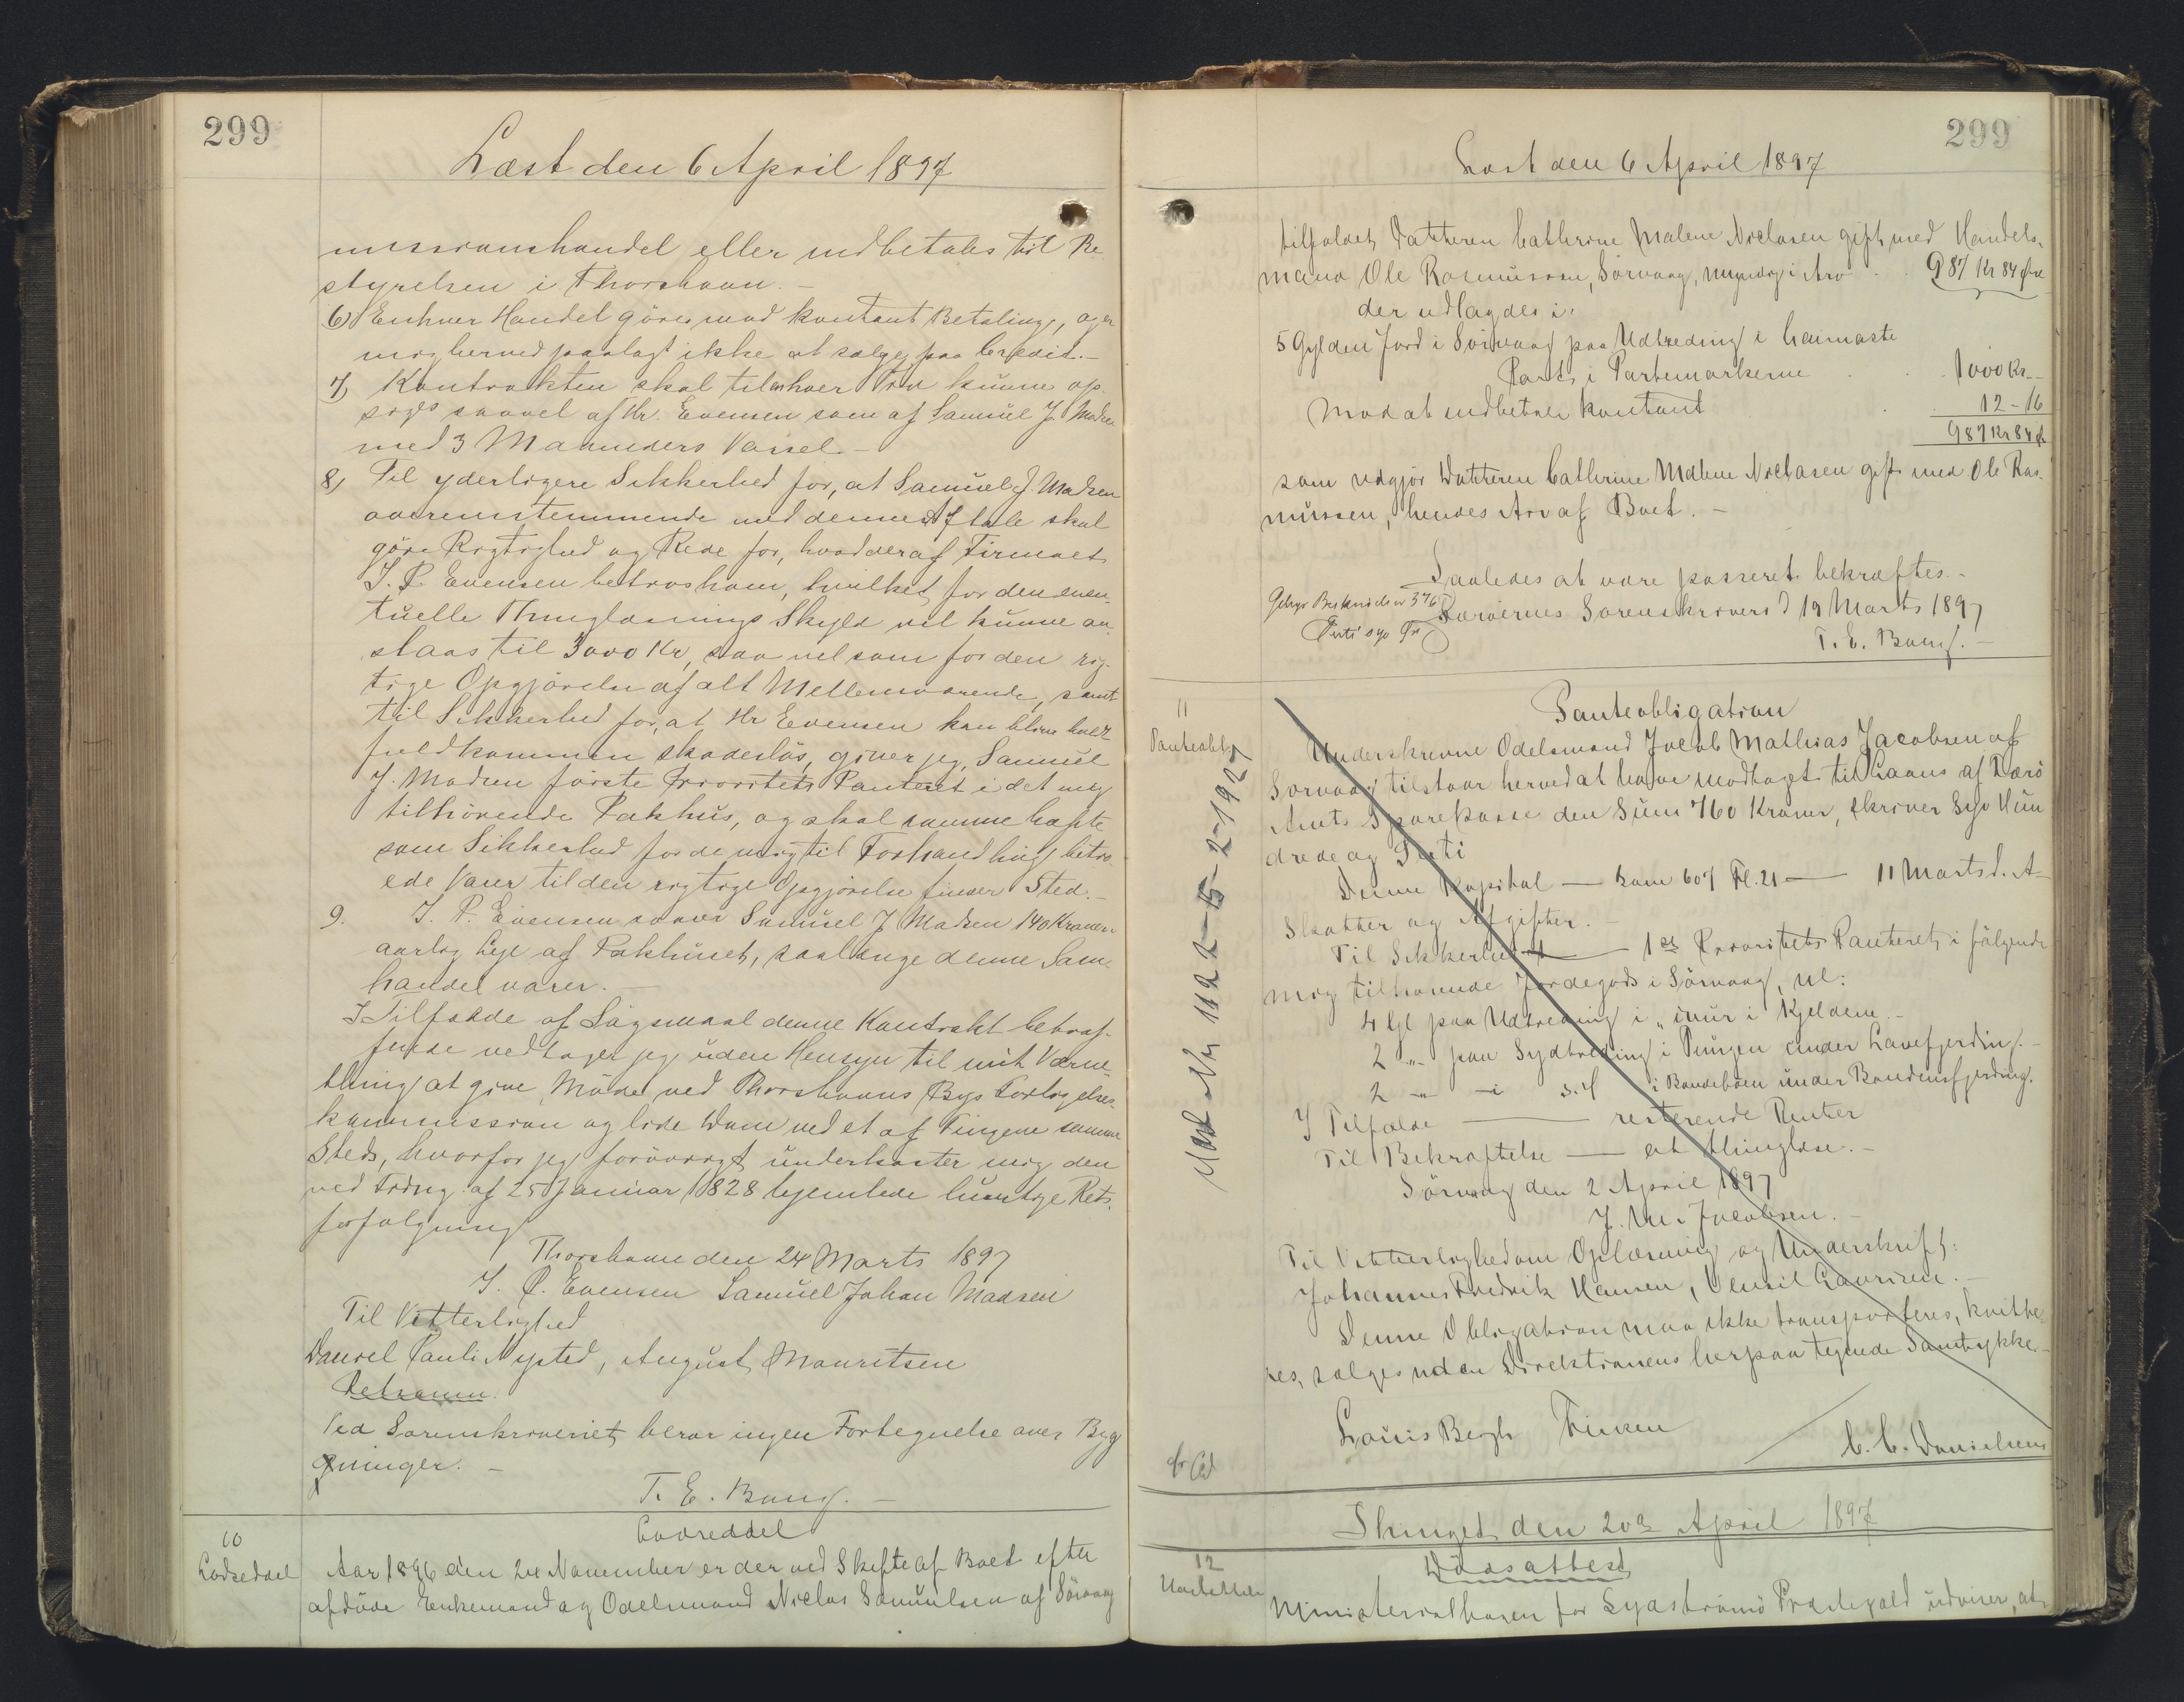 299
Læst den 6 April 1897
missionshandel eller indbetales til Be
styrelsen i Thorshavn.-
6) Enhver Handel göres mod kontant Betaling, og er
mig herved paalagt ikke at sælge paa Credit.-
7) Kontrakten skal til enhver Tid kunne op
siges saavel af Hr. Evensen som af Samuel J. Madsen
med 3 Maaneders Varsel.-
8) Til yderligere Sikkerhed for, at Samuel J. Madsen
overenstemmende med denne Aftale skal
göre Rigtighed og Rede for, hvad der af Firmaet
J. P. Evensen betros ham, hvilket for den even-
tuelle Thinglæsnings Skyld vil kunne an-
slaas til 3000 Kr, saa vel som for den rig-
tige Opgjörelse af alt Mellemværende, samt
til Sikkerhed for, at Hr Evensen kan blive holdt
fuldkommen skadeslös, giver jeg, Samuel
J. Madsen förste Prioritets Panteret i det mig
tilhörende Pakhus, og skal samme hæfte
som Sikkerhed for de mig til Forhandling betro-
ede Varer til den rigtige Opgjörelse finder Sted.-
9. J. P. Evensen svarer Samuel J Madsen 140 Kroner i
aarlig Leje af Pakhuset, saalænge denne Sam-
handel varer.-
I Tilfælde af Sögsmaal denne Kontrakt betræf-
fende vedtager jeg uden Hensyn til mit Værne-
thing at give Möde ved Thorshavns Bys Forligelses-
kommission og lide Dom ved et af Tingene samme
Steds, hvorfor jeg forövrigt underkaster mig den
ved Frdng. af 25 Januar 1828 hjemlede hurtige Rets-
forfölgning
Thorshavn den 24 Marts 1897
J. P. Evensen Samuel Johan Madsen
Til Vitterlighed
Daniel Pauli Nysted, August Mouritsen
Retsanm.
Ved Sorenskriveriet beror ingen Fortegnelse over Byg
ninger.-
T. E. Bang.-
10
Lodseddel
Lodseddel
Aar 1896 den 24 November er der ved Skifte af Boet efter
afdöde Enkemand og Odelsmand Niclas Samuelsen af Sörvaag
299
Læst den 6 April 1897
tilfaldet Datteren Cathrine Malene Niclasen gift med Handels-
mand Ole Rasmussen, Sörvaag, i Arv 987 Kr 84 Öre
der udlagdes i:
5 Gylden Jord i Sörvaag paa Udtreding i
Parts i Partemarkerne 1000 Kr.-
mod at indbetale kontant 12-16
987 Kr 84 Ö
som udgjör Datteren Cathrine Malene Niclasen gift med Ole Ras-
mussen, hendes Arv af Boet.-
Saaledes at være passeret bekræftes.-
Gebyr Beskrivelse 376
Færöernes Sorenskriveri d 19 Marts 1897
T. E. Bang.-
11
Panteoblg.
Panteobligation
Underskrevne Odelsmand Jacob Mathias Jacobsen af
Sörvaag tilstaar herved at have modtaget til Laans af Færö
Amts Sparekasse den Sum 760 Kroner, skriver Syv Hun
drede og
Denne Kapital — som 607 Fl. 21 — 11 Marts d. A-
Skatter og Afgifter.-
Til Sikkerhed — 1ste Prioritets Panteret i fölgende
mig tilhörende Jordegods i Sörvaag, nl:
4 Gl paa Udtreding i „innir i Kjeldem.-
2 -„- paa Sydtreding i Pungen under Lavefjerding.-
2 -„- -i s. f i Bondeböen under Bondensfjerding.
I Tilfælde — resterende Renter
Til Bekræftelse — at thinglæse.-
Sörvaag den 2 April 1897
J. M. Jacobsen.-
Til Vitterlighed om Oplæsning og Underskrift:
Johannes Fredrik Hansen, Lauritsen.-
Denne Obligation maa ikke transporteres, kvitte-
res, sælges uden Direktionens herpaa tegnede Samtykke.-
Louis Bergh Finsen C. C. Danielsen
Thinget den 20de April 1897
12
Dödsattest
Ministerialbogen for Sydströmö Præstegjeld udviser, at